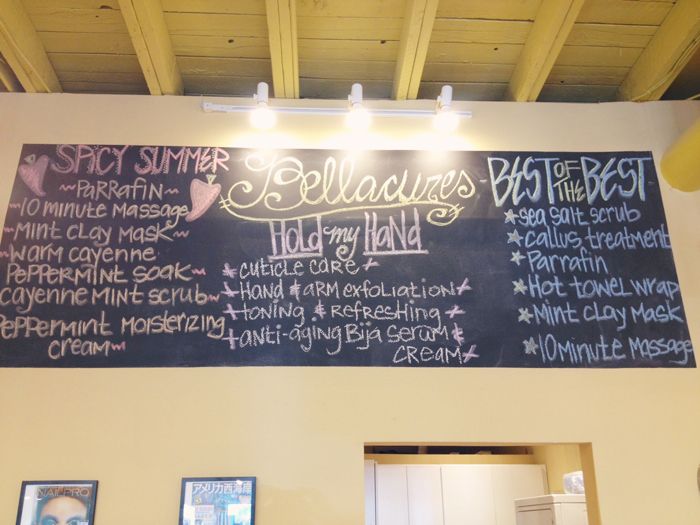 SPICY SUMMER
~PaRRafin~
~10 minute Massage
~Mint Clay Mask~
~Warm Cayenne
PePPERMINT SOAK~
Cayenne Mint Scrub~
PePPermint Moisterizing
CREAM~
Bellacures
Hold my HaNd
CUTICLE CARE
HaNd & aRM EXFOLIATION
TONING & REFRESHING
aNTI-AGING BIJA SERUM &
CREAM
BEST OF THE BEST
Sea Salt Scrub
Callus treatment
Parrafin
Hot towel wrap
Mint Clay Mask
10 Minute Massage
NAILPRO
アメリカ西海岸